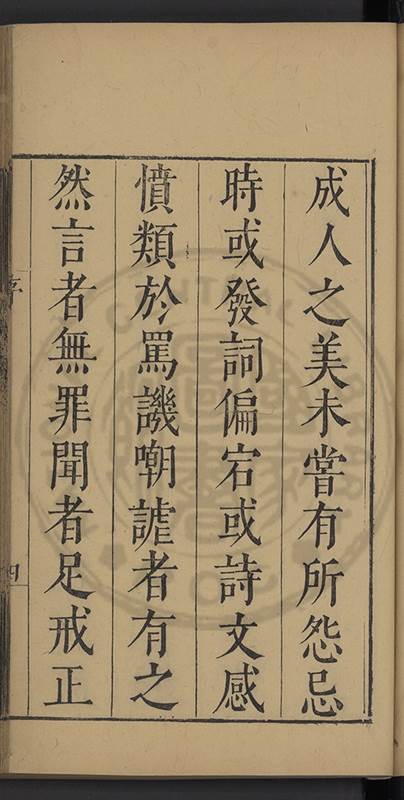 成人之美未甞有所怨忌
時或發詞偏宕或詩文感
憤類於罵譏嘲謔者有之
然言者無罪聞者足戒正
序
四